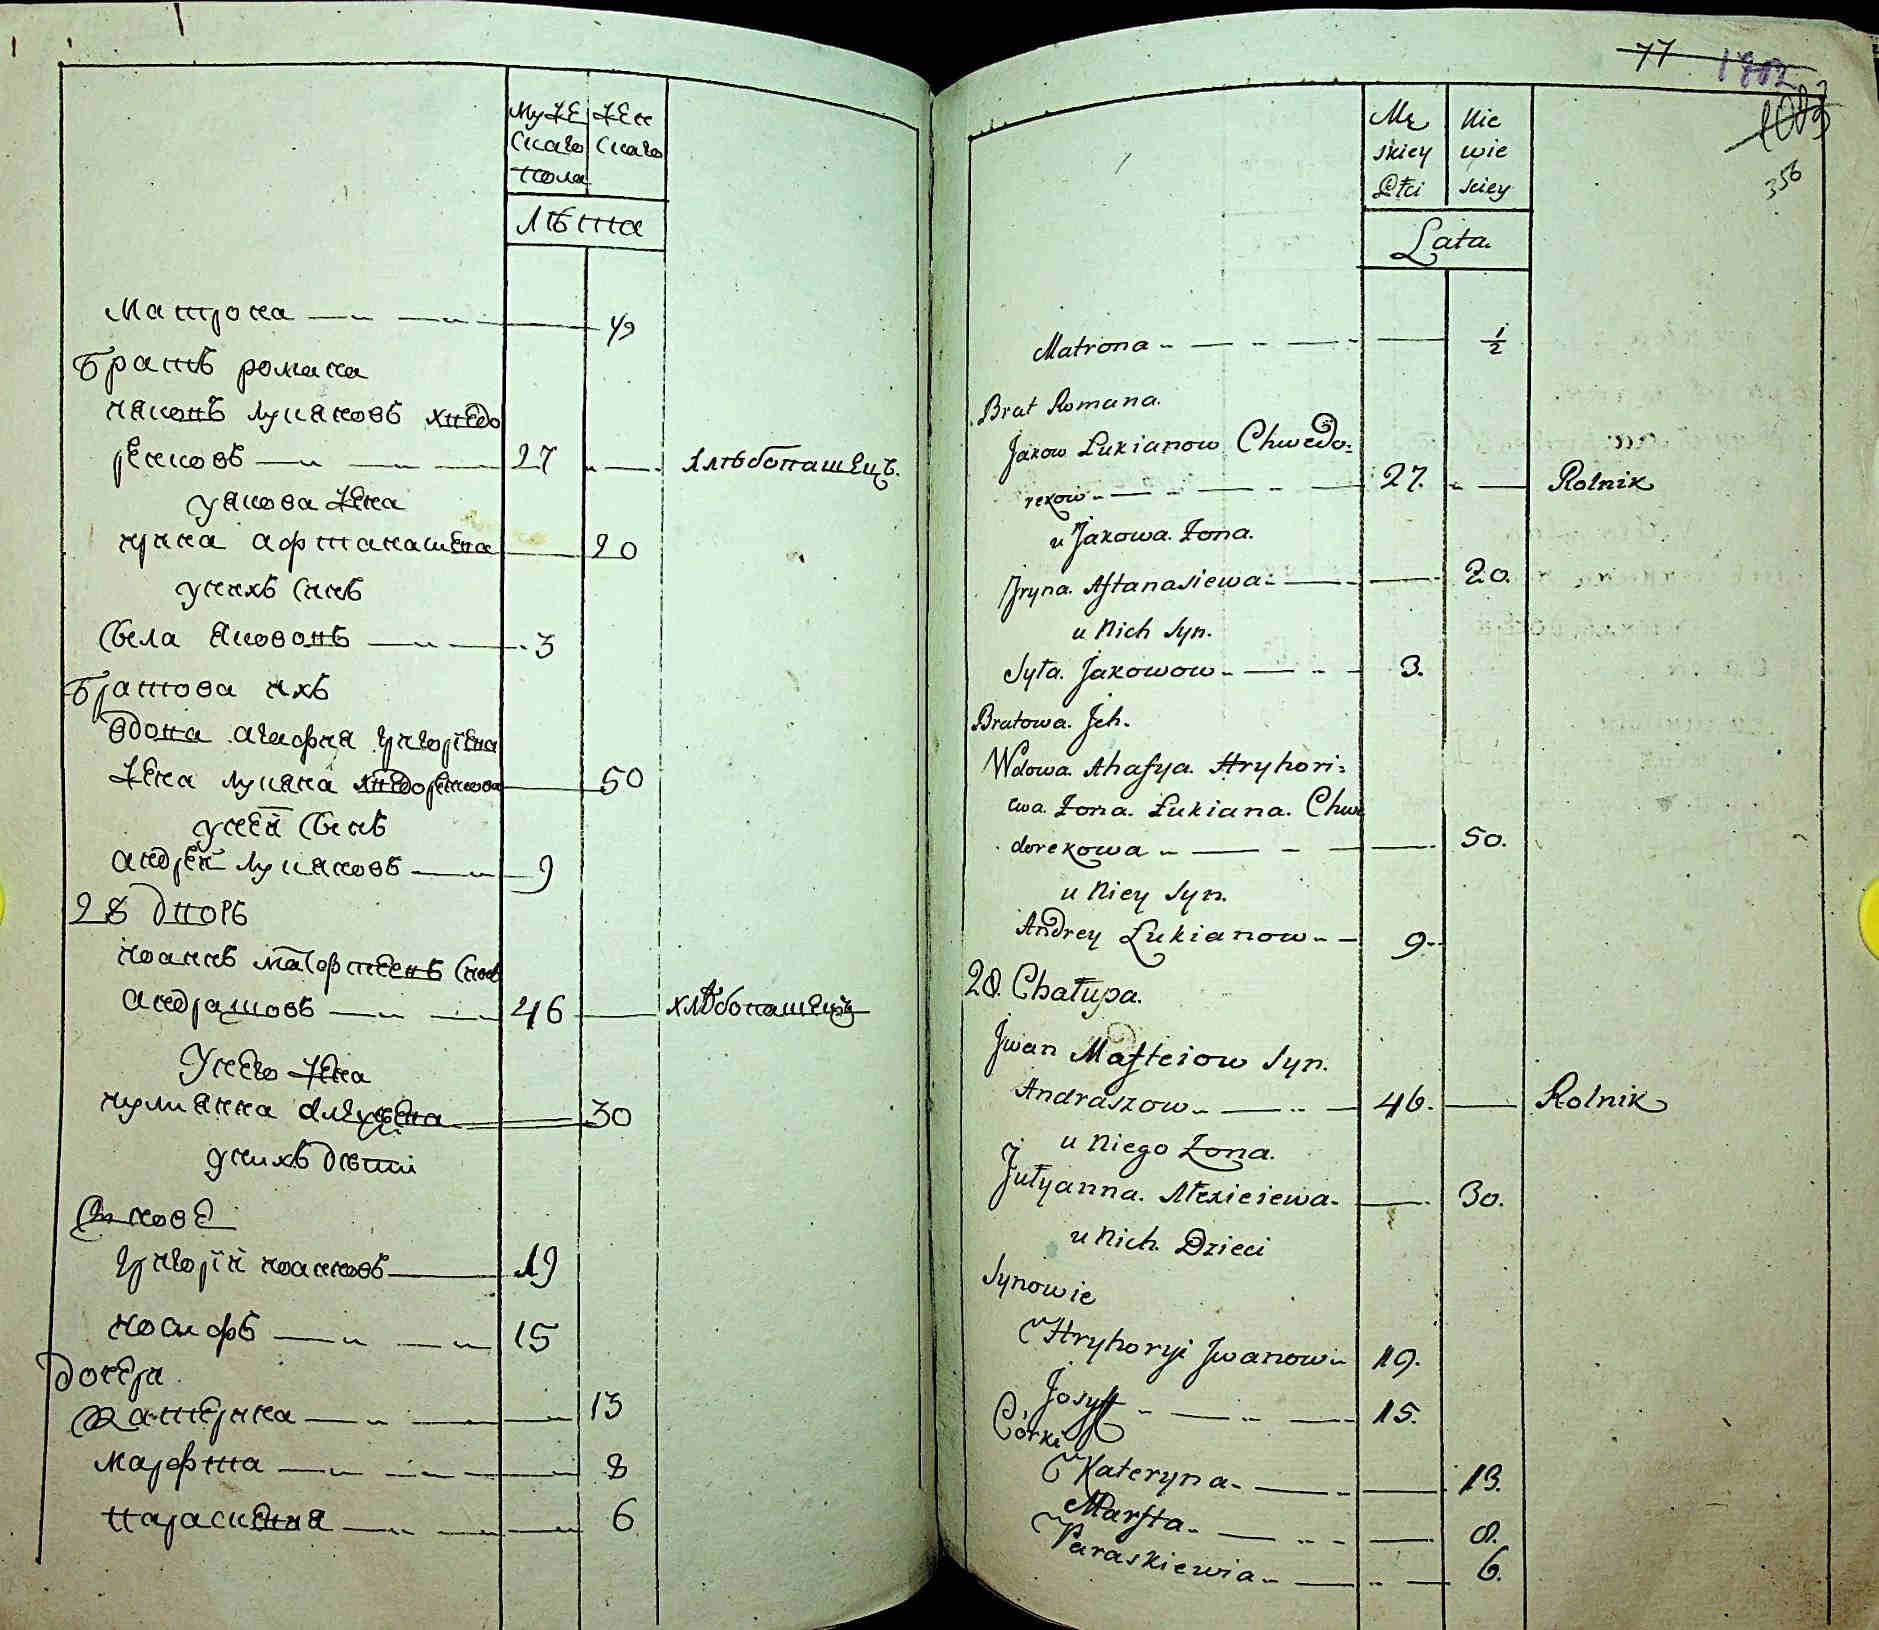 Муже
скаго
пола
Жен
скаго
Лѣта
Матрона 1/2
Братъ романа
якопъ лукяновъ хведо
ренковъ 27 хлѣбопашецъ.
у якова жена
ирина афтанашева 20
у нихъ синъ
Сила Якововъ 3
Братова ихъ
вдова агафия григорiева
жена лукяна хведоренкова 50
у неей синъ
андрей лукяновъ 9
28 дворъ
иоаннъ матфтеевъ синъ
андрашовъ 46 хлѣбопашецъ
У него жена
иулиянна алексеева 30
у нихъ дѣти
Синове
григорiй иоанновъ 19
иосифъ 15
дочери
Катерина 13
марфта 8
параскевия 6
77 1802
1003
356
Mę
skiey
Płci
Nie
wie
sciey
Lata.
Matrona 1/2
Brat Romana.
Jakow Łukianow Chwedo=
rekow 27. Rolnik
u Jakowa Żona.
Jryna Aftanasiewa 20.
u Nich Syn.
Syła. Jakowow 3.
Bratowa. Jch.
Wdowa. Ahafya. Hryhori=
ewa. Żona. Łukiana. Chwe
dorekowa 50.
u Niey Syn.
Andrey Łukianow 9.
28. Chałupa.
Jwan Mafteiow Syn.
Andraszow 46. Rolnik
u Niego Żona.
Jułyanna. Alexieiewa. 30.
u Nich. Dzieci
Synowie
Hryhoryi Jwanow 19.
Josyff 15.
Córki
Kateryna 13.
Marfta 8.
Paraskiewia 6.